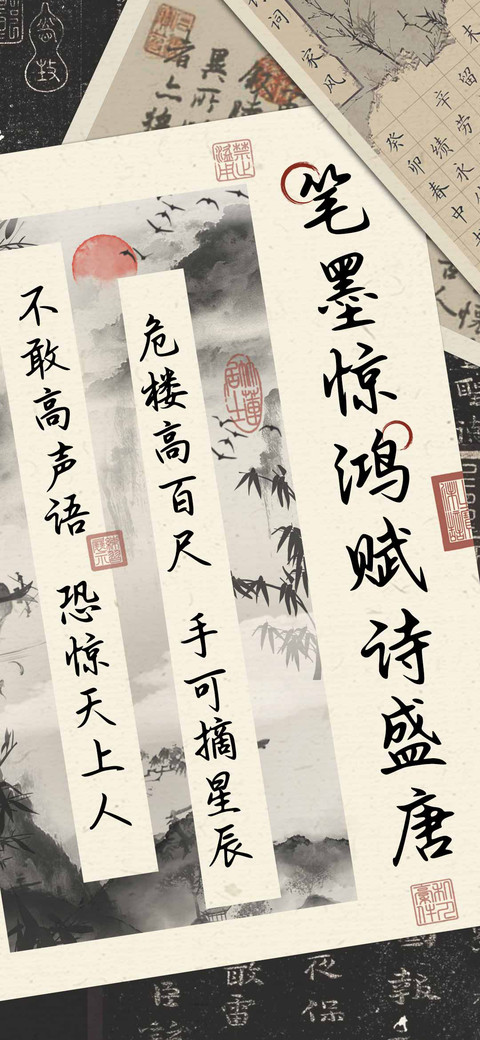 笔墨惊鸿赋诗盛唐
危楼高百尺 手可摘星辰
不敢高声语 恐惊天上人
家风
癸卯春